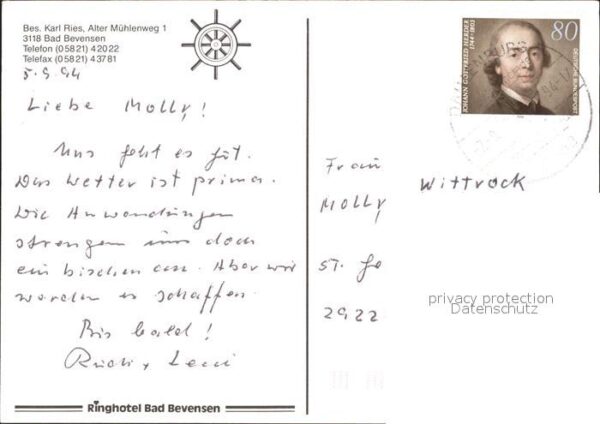 Bes. Karl Ries, Alter Mühlenweg 1
3118 Bad Bevensen
Telefon (05821) 42022
Telefax (05821) 43781
5.9.94
Liebe Molly!
Uns geht es gut.
Das Wetter ist prima.
Die Anwendungen
strengen uns doch
ein bischen an. Aber wir
werden es schaffen.
Bis bald!
Rudi + Leni
Ringhotel Bad Bevensen
JOHANN GOTTFRIED HERDER
1744-1803
80
DEUTSCHE BUNDESPOST
Frau
Molly Wittrock
St. Ge
2922
privacy protection
Datenschutz